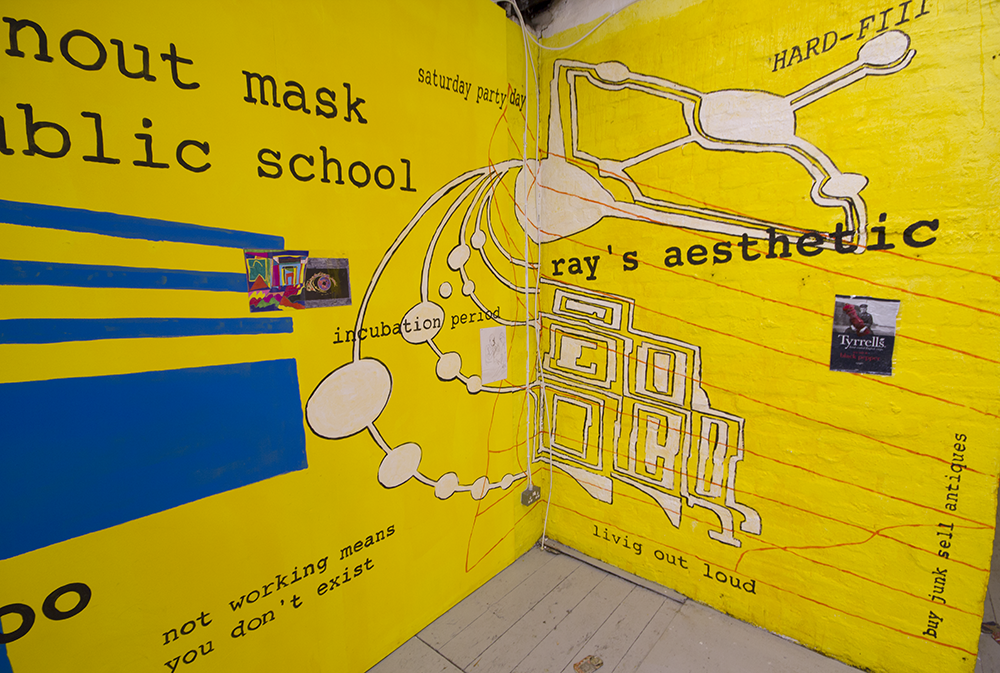 nout mask
ublic school
saturday party day
HARD-FIII
ray's aesthetic
incubation period
Tyrrells
black pepper
livig out loud
buy junk sell antiques
not working means
you don't exist
oo